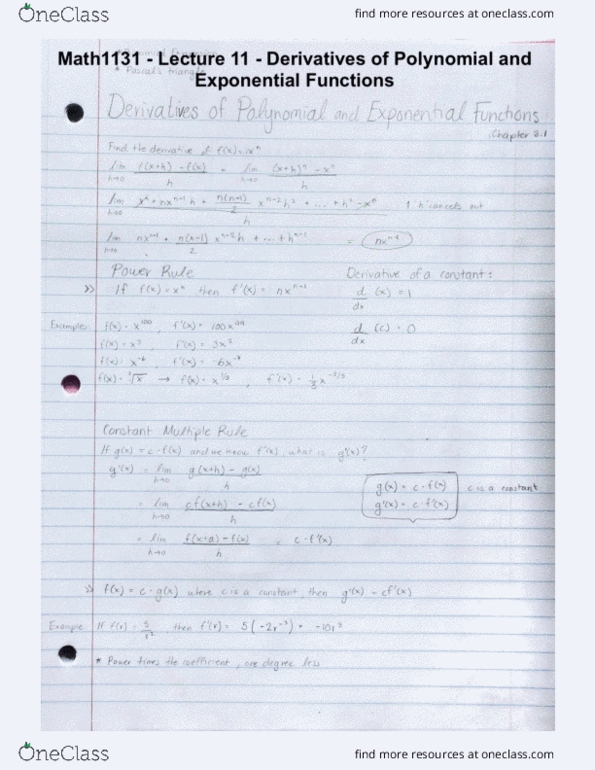 OneClass
find more resources at oneclass.com
Math1131 - Lecture 11 - Derivatives of Polynomial and
Exponential Functions
* Pascal's triangle
Derivatives of Polynomial and Exponential Functions
Chapter 3.1
Find the derivative of f(x) = xⁿ
lim h→0 (f(x+h) - f(x))/h = lim h→0 ((x+h)ⁿ - xⁿ)/h
lim h→0 (xⁿ + nxⁿ⁻¹h + n(n-1)/2 xⁿ⁻²h² + ... + hⁿ - xⁿ)/h 'h' cancels out
lim h→0 nxⁿ⁻¹ + n(n-1)/2 xⁿ⁻²h + ... + hⁿ⁻¹ = nxⁿ⁻¹
Power Rule
Derivative of a constant:
>> If f(x) = xⁿ then f'(x) = nxⁿ⁻¹
d/dx (x) = 1
Examples f(x) = x¹⁰⁰, f'(x) = 100x⁹⁹
d/dx (c) = 0
f(x) = x³ f'(x) = 3x²
f(x) = x⁻⁶ f'(x) = -6x⁻⁷
f(x) = ³√x → f(x) = x^(1/3), f'(x) = 1/3 x^(-2/3)
Constant Multiple Rule
If g(x) = c · f(x) and we know f'(x), what is g'(x)?
g'(x) = lim h→0 (g(x+h) - g(x))/h
g(x) = c · f(x)
g'(x) = c · f'(x)
c is a constant
= lim h→0 (cf(x+h) - cf(x))/h
= lim h→0 (f(x+h) - f(x))/h = c · f'(x)
>> f(x) = c · g(x) where c is a constant, then g'(x) = cf'(x)
Example If f(r) = 5/r², then f'(r) = 5(-2r⁻³) = -10r³
* Power times the coefficient, one degree less
OneClass
find more resources at oneclass.com